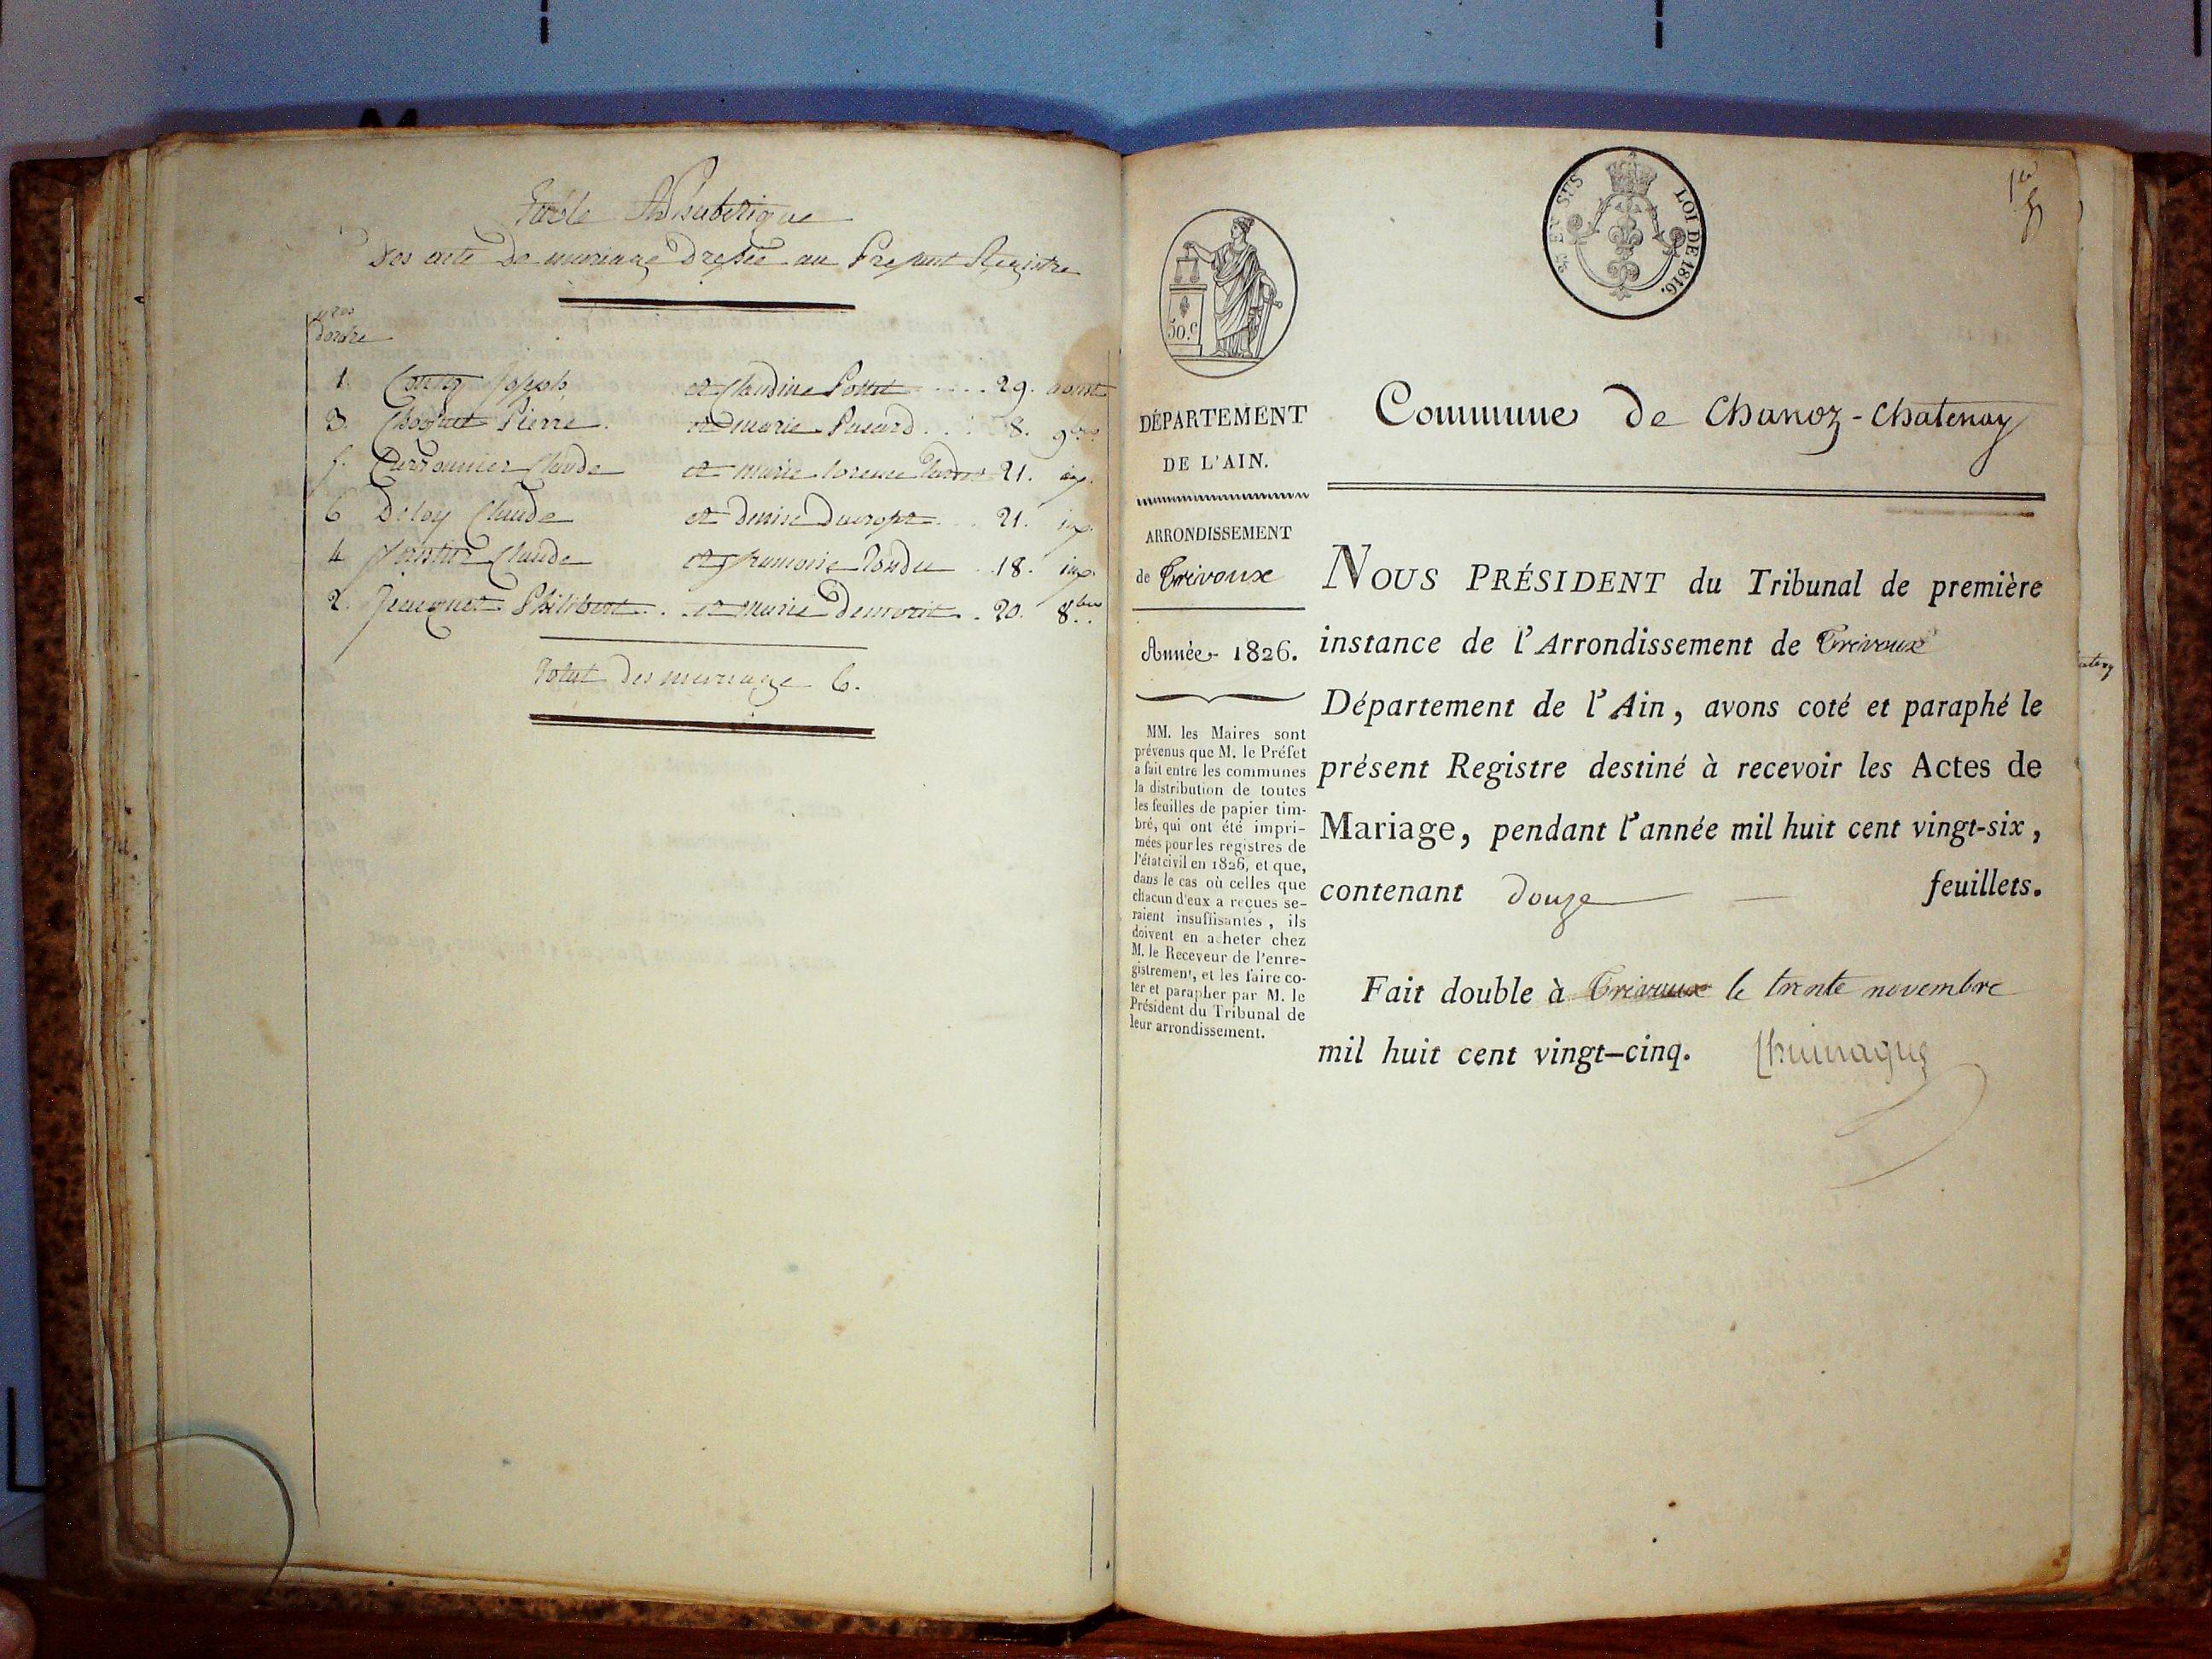 Table Alphabetique
Des acte De mariage Dressée au Present Registre
nos
D'ordre
1. Joseph et Claudine 29. aoust
3. Pierre. et marie 8. 9bre
5. Claude et marie 21. id.
6 Deloy Claude et Denise 21. id.
4 Claude et francoise Tondu 18. id.
2. Philibert et marie 20. 8bre
Total Des mariage 6.
1er
LOI DE 1816.
50.c
DÉPARTEMENT
DE L'AIN.
ARRONDISSEMENT
de Trévoux
Année 1826.
MM. les Maires sont
prévenus que M. le Préfet
a fait entre les communes
la distribution de toutes
les feuilles de papier tim-
bré, qui ont été impri-
mées pour les registres de
l'état civil en 1826, et que,
dans le cas où celles que
chacun d'eux a reçues se-
raient insuffisantes, ils
doivent en acheter chez
M. le Receveur de l'enre-
gistrement, et les faire co-
ter et parapher par M. le
Président du Tribunal de
leur arrondissement.
Commune de Chanoz-Chatenay
NOUS PRÉSIDENT du Tribunal de première
instance de l'Arrondissement de Trévoux
Département de l'Ain, avons coté et paraphé le
présent Registre destiné à recevoir les Actes de
Mariage, pendant l'année mil huit cent vingt-six,
contenant douze feuillets.
Fait double à Trévoux le trente novembre
mil huit cent vingt-cinq.